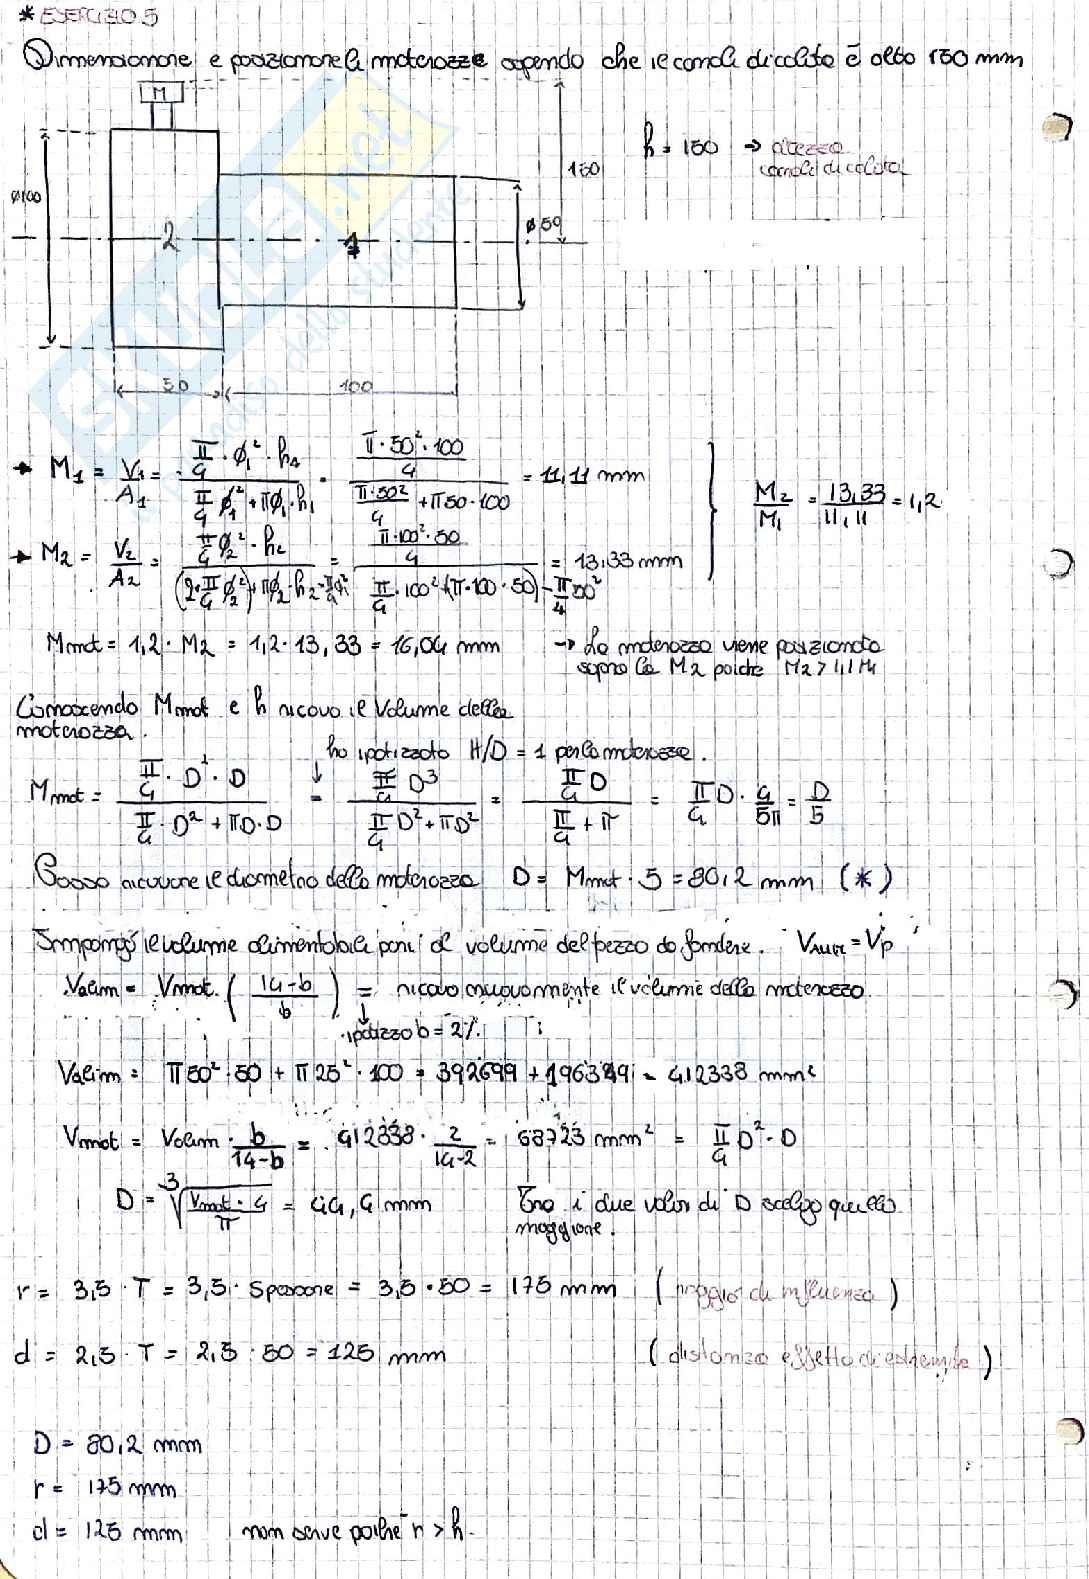 * ESERCIZIO 5
Dimensionare e posizionare la materozza sapendo che il canale di colata è alto 150 mm
M
h = 150 → altezza
canale di colata
150
ø100
ø50
2
1
50
100
SKUOLA.net
→ M1 = V1/A1 = (π/4 · ø1² · h1)/(π/4 ø1² + πø1·h1) = (π·50²·100/4)/(π·50²/4 + π50·100) = 11,11 mm
M2/M1 = 13,33/11,11 = 1,2
→ M2 = V2/A2 = (π/4 ø2² · h2)/((2·π/4 ø2²) + πø2·h2 - π/4 ø1²) = (π·100²·50/4)/(π/4·100² + (π·100·50) - π/4 50²) = 13,33 mm
Mmat = 1,2 · M2 = 1,2 · 13,33 = 16,04 mm → La materozza viene posizionata
sopra la M2 poiché M2 > 1,1 M1
Conoscendo Mmat e h ricavo il Volume della
materozza.
ho ipotizzato H/D = 1 per la materozza.
Mmat = (π/4 · D² · D)/(π/4 · D² + πD·D) = (π/4 D³)/(π/4 D² + πD²) = (π/4 D)/(π/4 + π) = π/4 D · 4/5π = D/5
Posso ricavare il diametro della materozza D = Mmat · 5 = 80,2 mm (*)
Impongo il volume alimentabile pari al volume del pezzo da fondere. VALIM = Vp
Valim = Vmat. (14-b/b) = ricavo nuovamente il volume della materozza.
ipotizzo b = 2%
Valim = π50²·50 + π25²·100 = 392699 + 196349 = 412338 mm²
Vmat = Valim · b/14-b = 412338 · 2/14-2 = 68723 mm² = π/4 D² · D
D = ³√(Vmat · 4/π) = 44,4 mm Tra i due valori di D scelgo quello
maggiore.
r = 3,5 · T = 3,5 · Spessore = 3,5 · 50 = 175 mm (raggio di influenza)
d = 2,5 · T = 2,5 · 50 = 125 mm (distanza effetto di estremità)
D = 80,2 mm
r = 175 mm
d = 125 mm non serve poiché r > h.